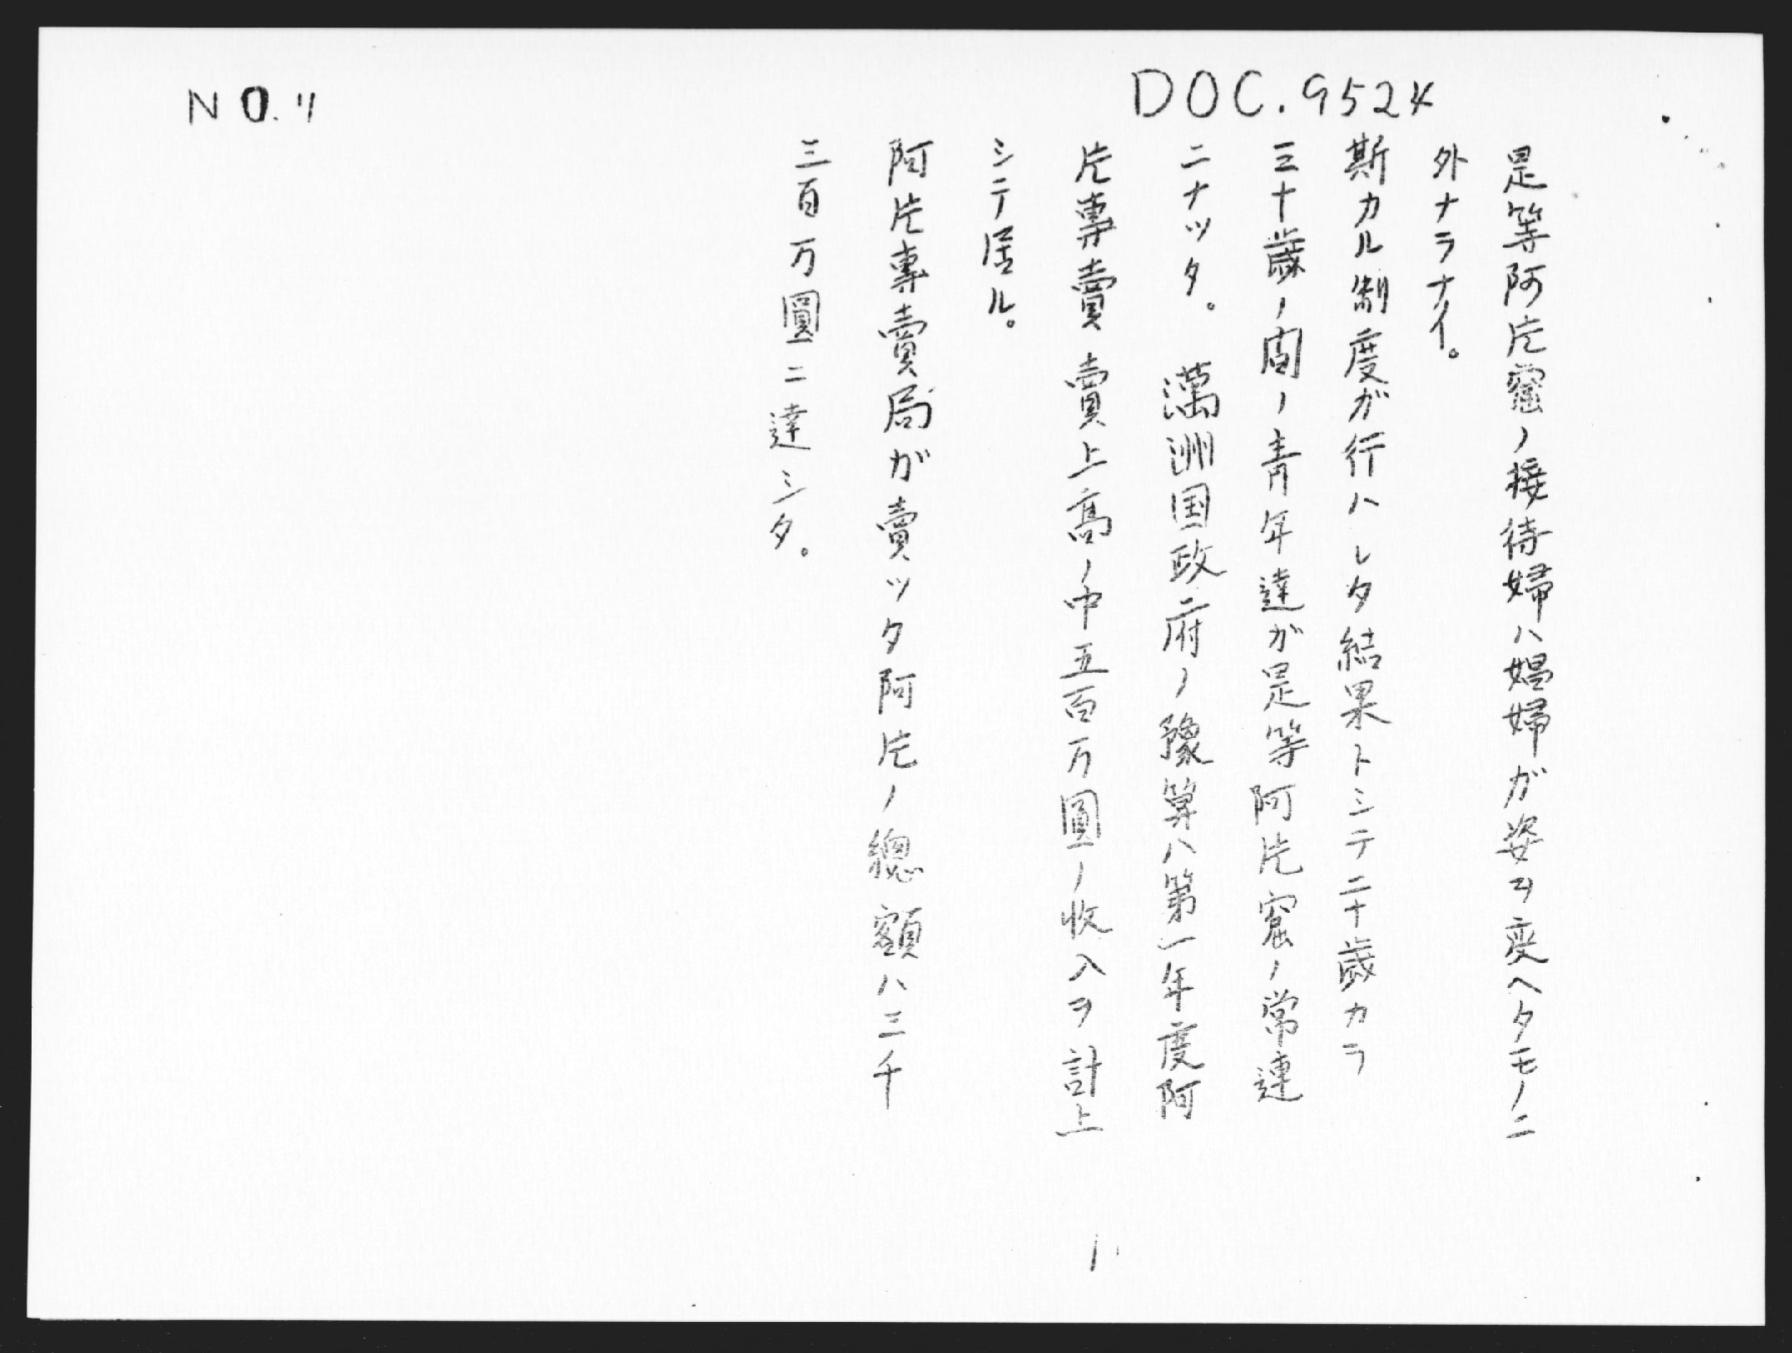 DOC. 9524
是等阿片窟ノ接待婦ハ娼婦ガ姿ヲ変ヘタモノニ
外ナラナイ。
斯カル制度ガ行ハレタ結果トシテ二十歳カラ
三十歳ノ間ノ青年達ガ是等阿片窟ノ常連
ニナッタ。 満洲国政府ノ豫算ハ第一年度阿
片專賣賣上高ノ中五百万圓ノ收入ヲ計上
シテ居ル。
阿片專賣局ガ賣ッタ阿片ノ總額ハ三千
三百万圓ニ達シタ。
NO.